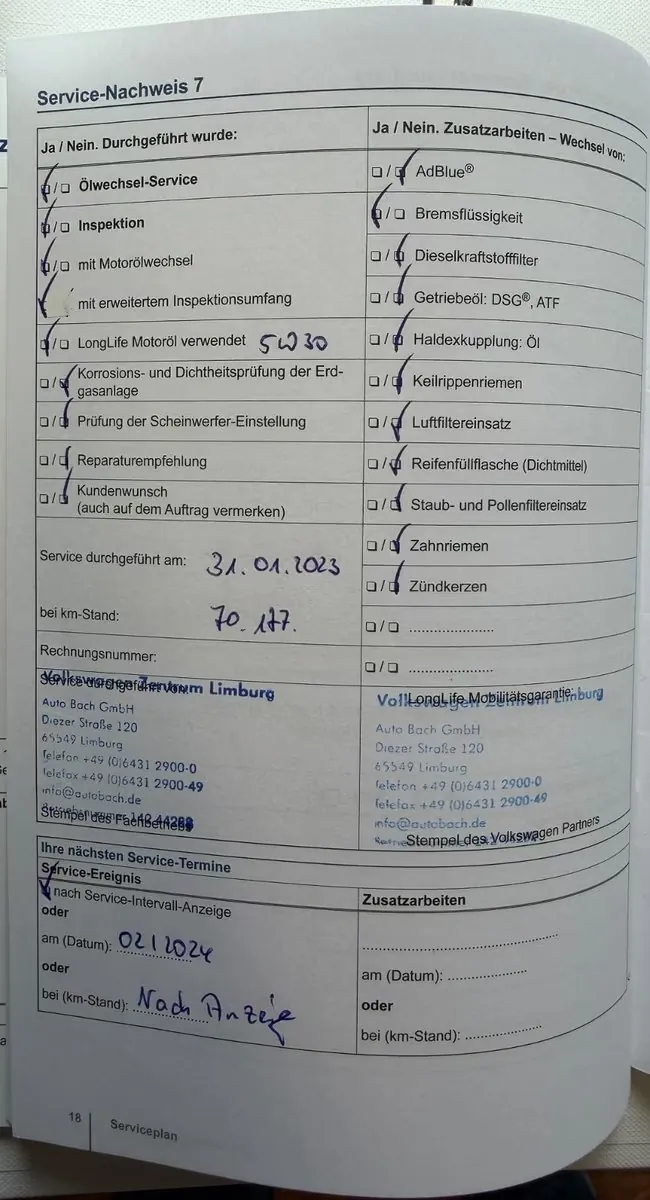 Service-Nachweis 7
Ja / Nein. Durchgeführt wurde:
Ölwechsel-Service
Inspektion
mit Motorölwechsel
mit erweitertem Inspektionsumfang
LongLife Motoröl verwendet 5W30
Korrosions- und Dichtheitsprüfung der Erd-
gasanlage
Prüfung der Scheinwerfer-Einstellung
Reparaturempfehlung
Kundenwunsch
(auch auf dem Auftrag vermerken)
Service durchgeführt am: 31.01.2023
bei km-Stand: 70.177.
Rechnungsnummer:
Service durchgeführt von:
Volkswagen Zentrum Limburg
Auto Bach GmbH
Diezer Straße 120
65549 Limburg
Telefon +49 (0)6431 2900-0
Telefax +49 (0)6431 2900-49
info@autobach.de
Stempel des Fachbetriebs
Ja / Nein. Zusatzarbeiten – Wechsel von:
AdBlue®
Bremsflüssigkeit
Dieselkraftstofffilter
Getriebeöl: DSG®, ATF
Haldexkupplung: Öl
Keilrippenriemen
Luftfiltereinsatz
Reifenfüllflasche (Dichtmittel)
Staub- und Pollenfiltereinsatz
Zahnriemen
Zündkerzen
LongLife Mobilitätsgarantie:
Volkswagen Zentrum Limburg
Auto Bach GmbH
Diezer Straße 120
65549 Limburg
Telefon +49 (0)6431 2900-0
Telefax +49 (0)6431 2900-49
info@autobach.de
Stempel des Volkswagen Partners
Ihre nächsten Service-Termine
Service-Ereignis
nach Service-Intervall-Anzeige
oder
am (Datum): 02/2024
oder
bei (km-Stand): Nach Anzeige
Zusatzarbeiten
am (Datum):
oder
bei (km-Stand):
18
Serviceplan